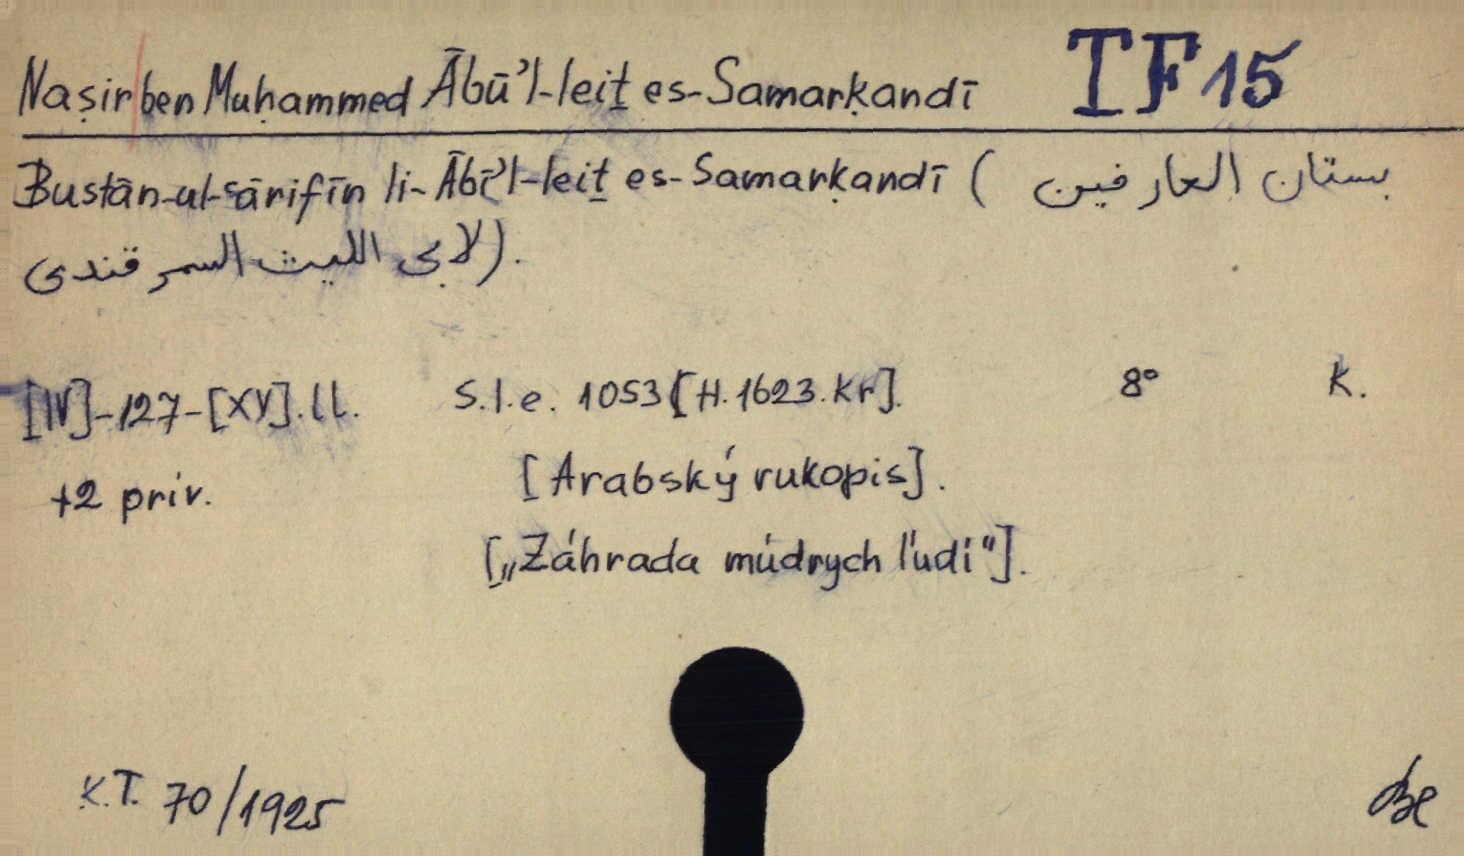 Naṣir ben Muḥammed Ābū'l-leiṯ es-Samarḳandī TF 15
Bustān-ul-sārifīn li-Ābī'l-leiṯ es-Samarḳandī ( بستان العارفين
لابى الليث السمرقندى).
[IV]-127-[XV].ll. S.l.e. 1053 [H. 1623. Kr]. 8° K.
+2 prív. [Arabský rukopis].
[„Záhrada múdrych ľudí“].
K.T. 70/1925